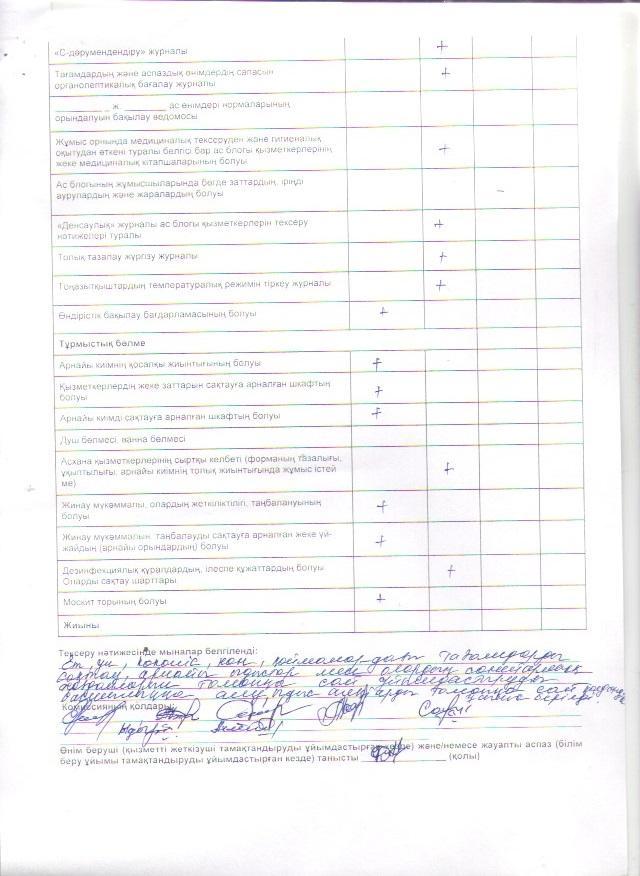 «С-дәрумендендіру» журналы +
Тағамдардың және аспаздық өнімдердің сапасын +
органолептикалық бағалау журналы
__________ ж. ________ ас өнімдері нормаларының
орындалуын бақылау ведомосы
Жұмыс орнында медициналық тексеруден және гигиеналық
оқытудан өткені туралы белгісі бар ас блогы қызметкерлерінің +
жеке медициналық кітапшаларының болуы
Ас блогының жұмысшыларында бөгде заттардың, іріңді –
аурулардың және жаралардың болуы
«Денсаулық» журналы ас блогы қызметкерлерін тексеру +
нәтижелері туралы
Толық тазалау жүргізу журналы +
Тоңазытқыштардың температуралық режимін тіркеу журналы +
Өндірістік бақылау бағдарламасының болуы +
Тұрмыстық бөлме
Арнайы киімнің қосалқы жиынтығының болуы +
Қызметкерлердің жеке заттарын сақтауға арналған шкафтың +
болуы
Арнайы киімді сақтауға арналған шкафтың болуы +
Душ бөлмесі, ванна бөлмесі
Асхана қызметкерлерінің сыртқы келбеті (форманың тазалығы,
ұқыптылығы, арнайы киімнің толық жиынтығында жұмыс істей +
ме)
Жинау мүкәммалы, олардың жеткіліктілігі, таңбалануының +
болуы
Жинау мүкәммалын, таңбалауды сақтауға арналған жеке үй- +
жайдың (арнайы орындардың) болуы
Дезинфекциялық құралдардың, ілеспе құжаттардың болуы. +
Оларды сақтау шарттары
Москит торының болуы +
Жиыны
Тексеру нәтижесінде мыналар белгіленді:
Ет, ұн, көкөніс, нан, тағамдарды
сақтау, арнайы ыдыстар мен олардың
талапқа сай ұйымдастыруды
алу, ыдыс талапқа сай
Комиссияның қолдары:
Өнім беруші (қызметті жеткізуші тамақтандыруды ұйымдастырған кезде) және/немесе жауапты аспаз (білім
беру ұйымы тамақтандыруды ұйымдастырған кезде) танысты ________________ (қолы)